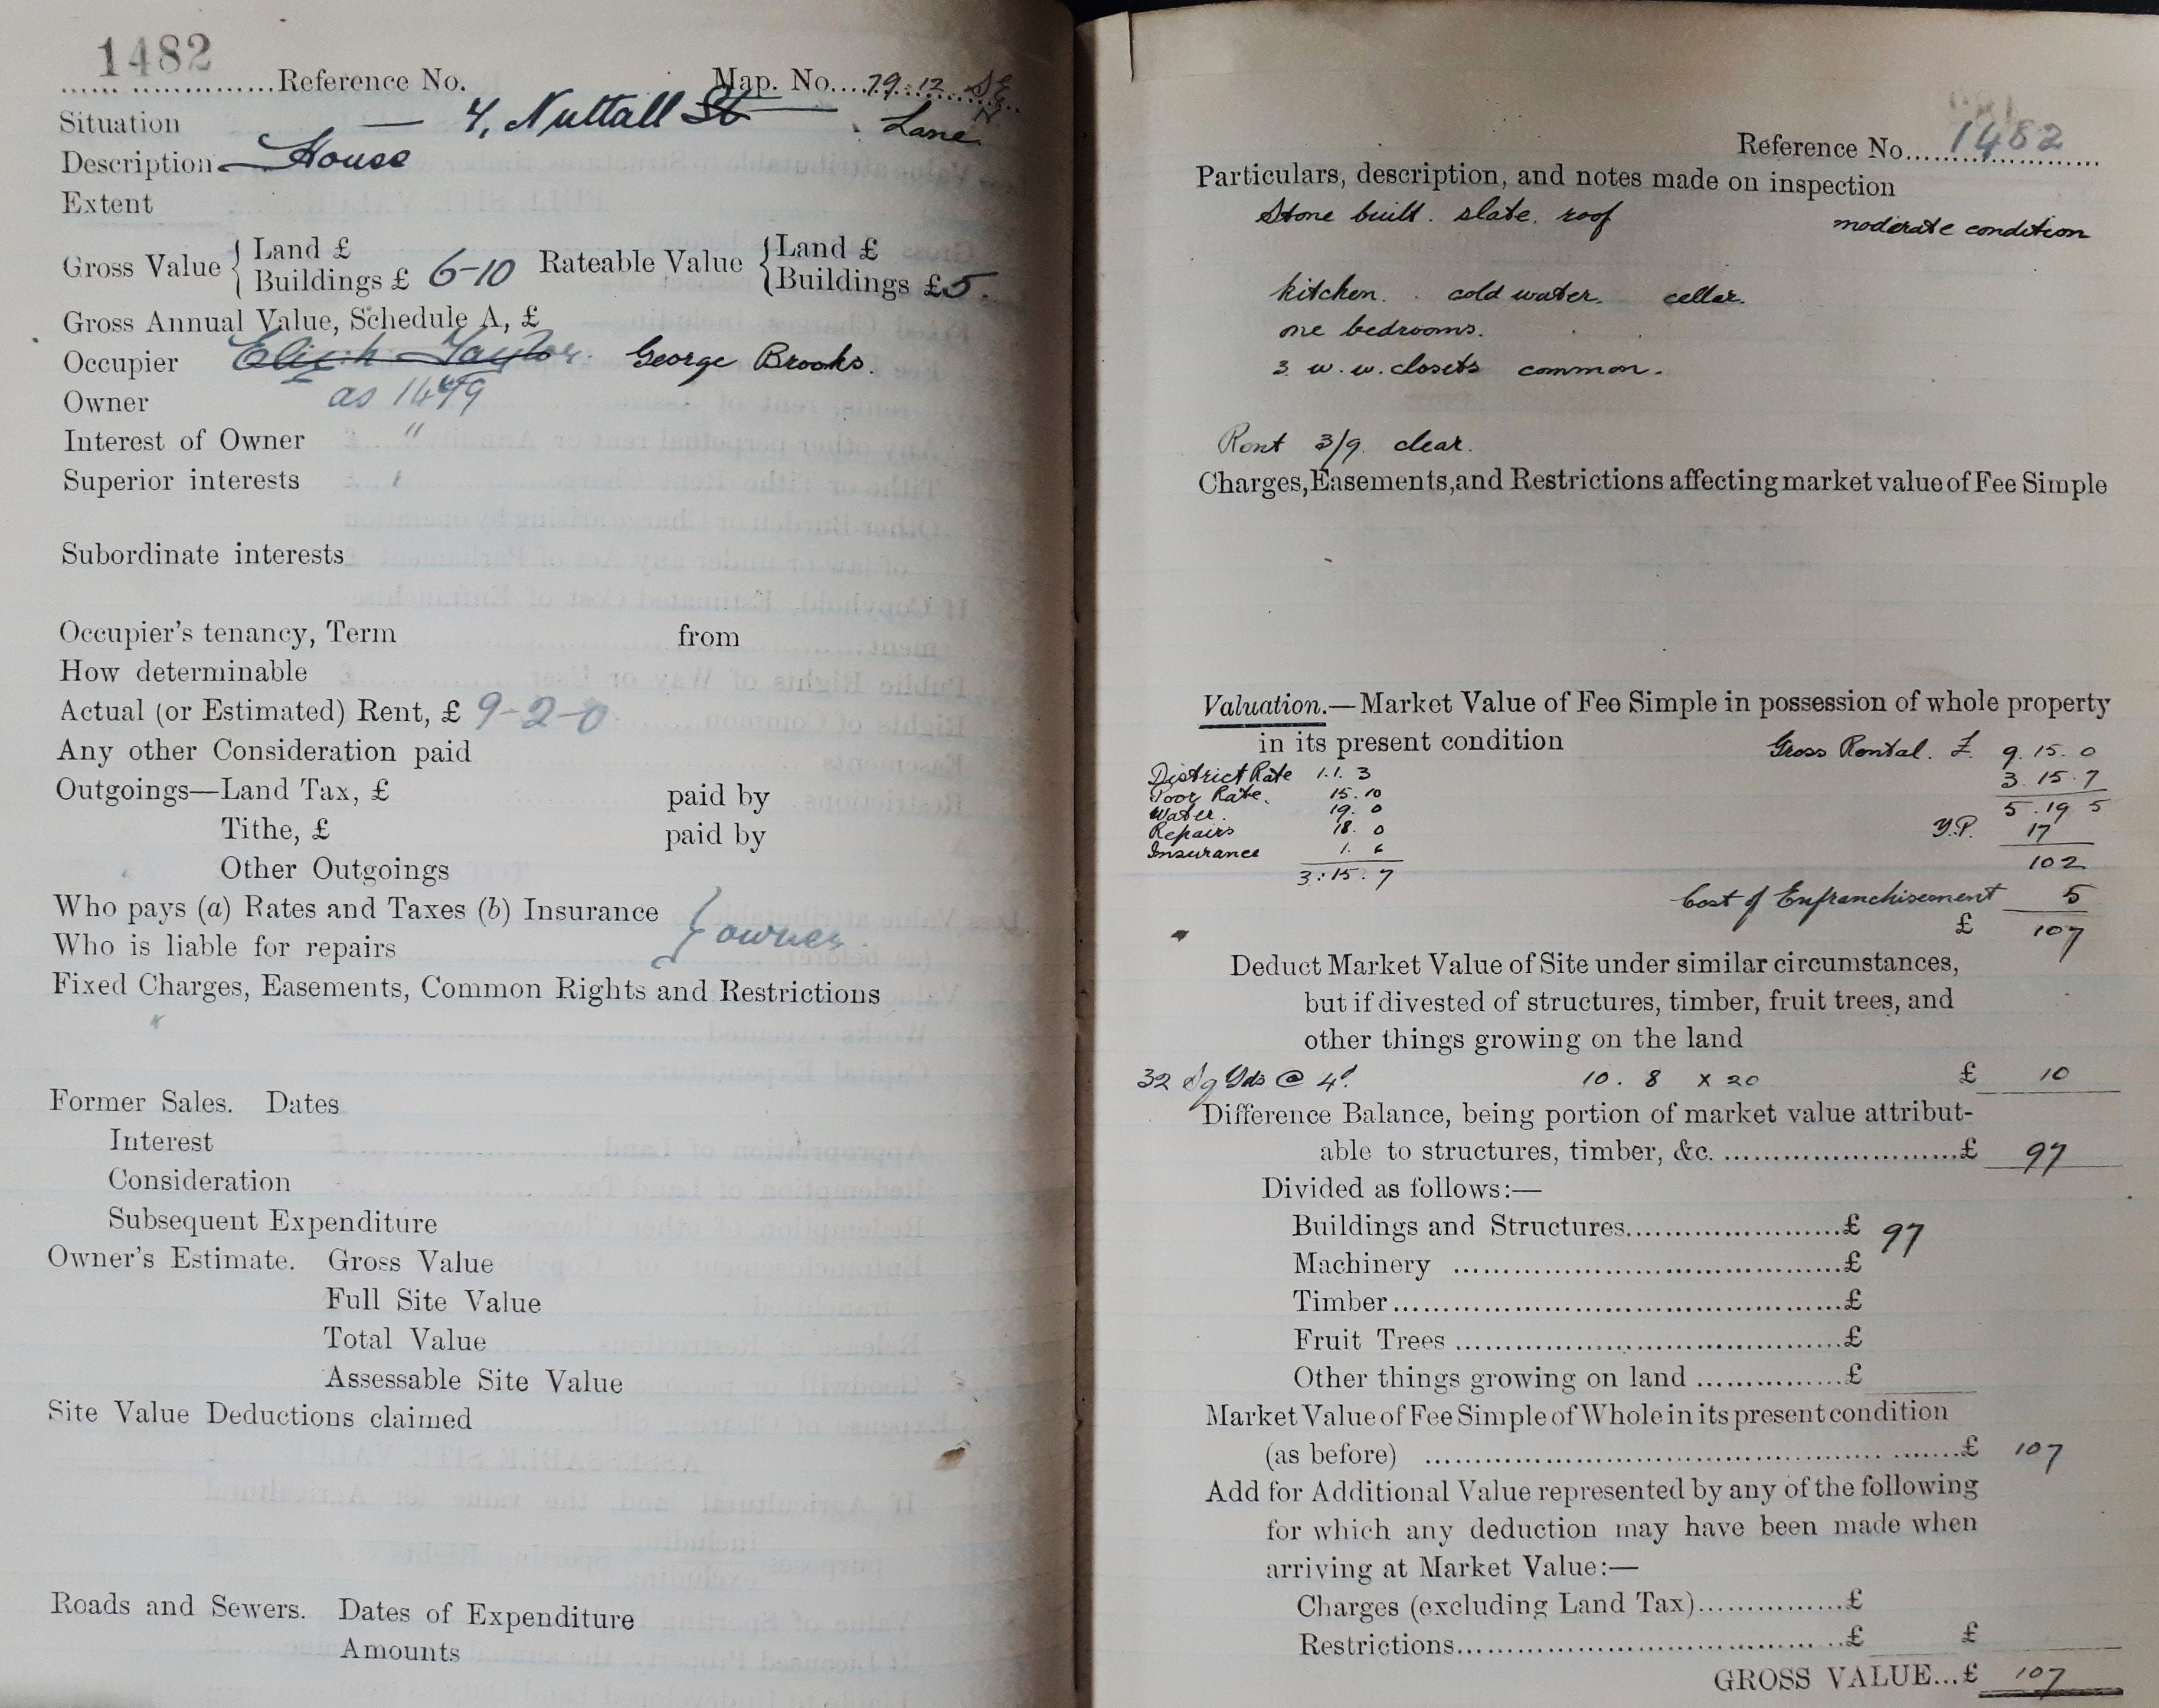 1482
Reference No. Map. No. 79.12 SE
Situation — 4, Nuttall St Lane
Description House
Extent
Gross Value { Land £ Rateable Value { Land £
Buildings £ 6-10 Buildings £5.
Gross Annual Value, Schedule A, £
Occupier Taylor. George Brooks.
Owner as
Interest of Owner "
Superior interests
Subordinate interests
Occupier's tenancy, Term from
How determinable
Actual (or Estimated) Rent, £ 9-2-0
Any other Consideration paid
Outgoings—Land Tax, £ paid by
Tithe, £ paid by
Other Outgoings
Who pays (a) Rates and Taxes (b) Insurance { owner.
Who is liable for repairs
Fixed Charges, Easements, Common Rights and Restrictions
Former Sales. Dates
Interest
Consideration
Subsequent Expenditure
Owner's Estimate. Gross Value
Full Site Value
Total Value
Assessable Site Value
Site Value Deductions claimed
Roads and Sewers. Dates of Expenditure
Amounts
Reference No. 1482
Particulars, description, and notes made on inspection
Stone built. slate. roof moderate condition
kitchen. cold water. cellar.
one bedrooms.
3 w.w.closets common.
Rent 3/9. clear.
Charges, Easements, and Restrictions affecting market value of Fee Simple
Valuation.—Market Value of Fee Simple in possession of whole property
in its present condition Gross Rental. £ 9. 15. 0
District Rate 1.1. 3 3. 15. 7
Poor Rate. 15. 10 5. 19 5
Water. 19. 0
Repairs 18. 0 Y.P. 17
Insurance 1. 6 102
3:15. 7
Cost of Enfranchisement 5
£ 107
Deduct Market Value of Site under similar circumstances,
but if divested of structures, timber, fruit trees, and
other things growing on the land
32 Sq Yds @ 4d. 10. 8 x 20 £ 10
Difference Balance, being portion of market value attribut-
able to structures, timber, &c. £ 97
Divided as follows:—
Buildings and Structures £ 97
Machinery £
Timber £
Fruit Trees £
Other things growing on land £
Market Value of Fee Simple of Whole in its present condition
(as before) £ 107
Add for Additional Value represented by any of the following
for which any deduction may have been made when
arriving at Market Value:—
Charges (excluding Land Tax) £
Restrictions £ £
GROSS VALUE...£ 107